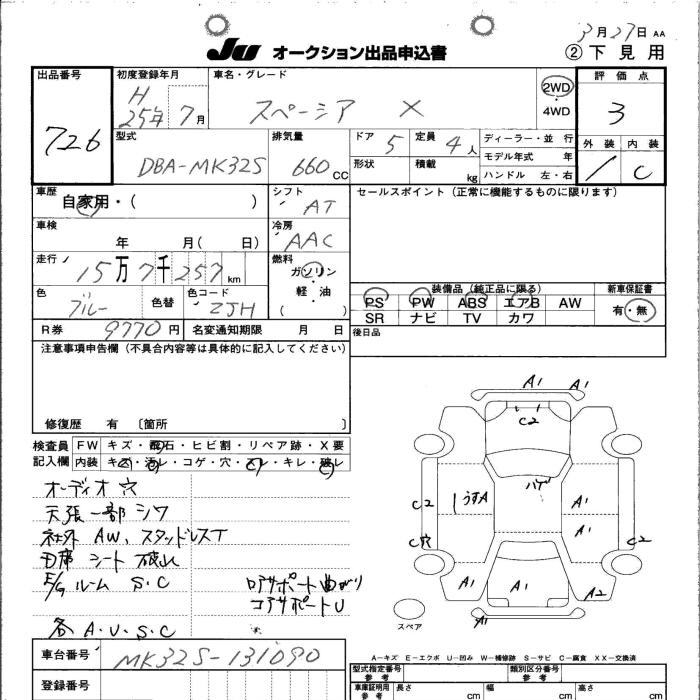 3月27日 AA
JU オークション出品申込書 ②下見用
出品番号 初度登録年月 車名・グレード 評価点
726 H 25年 7月 スペーシア X 2WD 4WD 3
型式 排気量 ドア 5 定員 4人 ディーラー・並行 外装 内装
DBA-MK32S 660CC 形状 積載 kg モデル年式 年 / C
ハンドル 左・右
車歴 自家用・( ) シフト AT セールスポイント(正常に機能するものに限ります)
車検 年 月( 日) 冷房 AAC
走行 15万7千257km 燃料 ガソリン・軽油 ( )
装備品(純正品に限る) 新車保証書
色 ブルー 色替 色コード ZJH
PS PW ABS エアB AW 有・無
SR ナビ TV カワ
R券 9770円 名変通知期限 月 日 後日品
注意事項申告欄(不具合内容等は具体的に記入してください)
修復歴 有 〔箇所 〕
検査員記入欄 FW キズ・飛石・ヒビ割・リペア跡・X要
内装 キズ・汚レ・コゲ・穴・スレ・キレ・破レ
オーディオ穴
天張一部シワ
社外AW、スタッドレスT
シート破れ
E/gルーム S.C
コアサポートU
各A.U.S.C
A1 A1
C2
ハゲ
C2 うすA A1
C穴 A1 C2
A1 A1 A2
A1
スペア
A-キズ E-エクボ U-凹み W-補修跡 S-サビ C-腐食 XX-交換済
車台番号 MK32S-131090
型式指定番号 参考 類別区分番号 参考
登録番号
車庫証明用 参考 長さ cm 幅 cm 高さ cm